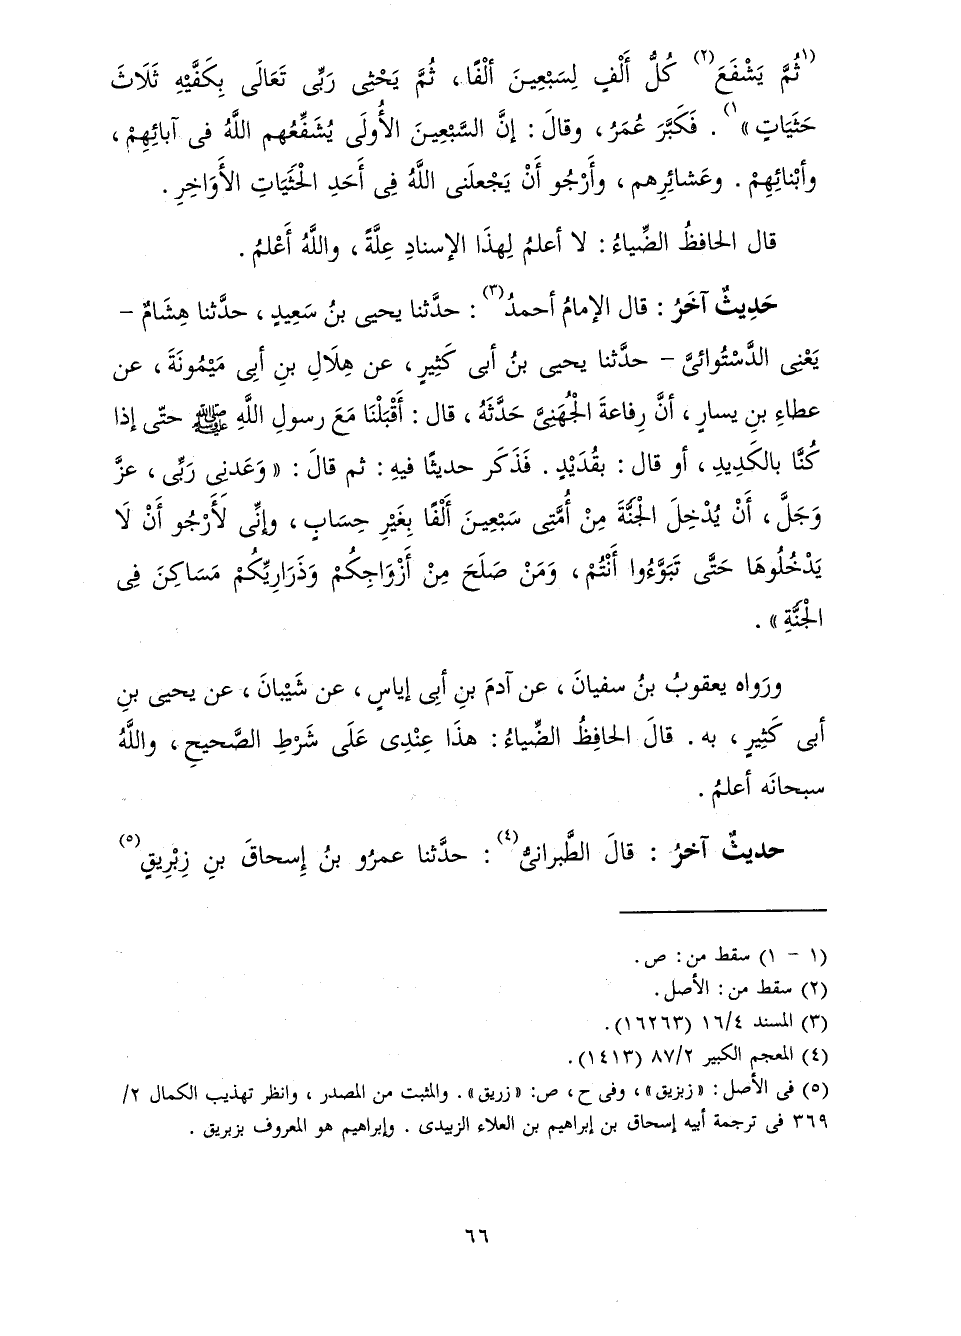 (١)ثُمَّ يَشْفَعَ(٢) كُلُّ أَلْفٍ لِسَبْعِينَ أَلْفًا، ثُمَّ يَحْثِى رَبِّى تَعَالَى بِكَفَّيْهِ ثَلَاثَ
حَثَيَاتٍ»(١). فَكَبَّرَ عُمَرُ، وقالَ: إنَّ السَّبْعِينَ الأُولَى يُشَفِّعُهم اللَّهُ فى آبائِهِمْ،
وأبْنائِهِمْ. وعَشائِرِهم، وأَرْجُو أَنْ يَجْعلَنى اللَّهُ فِى أَحَدِ الحْثَيَاتِ الأَوَاخِرِ.
قال الحافظُ الضِّياءُ: لا أعلمُ لِهذَا الإسنادِ عِلَّةً، واللَّهُ أَعْلمُ.
حَدِيثٌ آخَرُ: قال الإمامُ أحمدُ(٣): حدَّثنا يحيى بنُ سَعِيدٍ، حدَّثنا هِشَامٌ –
يَعْنِى الدَّسْتُوائىَّ – حدَّثنا يحيى بنُ أبى كَثِيرٍ، عن هِلَالِ بنِ أبِى مَيْمُونَةَ، عن
عطاءِ بنِ يسارٍ، أنَّ رِفاعةَ الجُهَنِىَّ حَدَّثَهُ، قال: أَقْبَلْنَا مَعَ رسولِ اللَّهِ ﷺ حتّى إذا
كُنَّا بالكَدِيدِ، أو قال: بقُدَيْدٍ. فَذَكَر حديثًا فيهِ: ثم قالَ: «وَعَدنِى رَبِّى، عزَّ
وَجَلَّ، أَنْ يُدْخِلَ الجْنَّةَ مِنْ أُمَّتِى سَبْعِينَ أَلْفًا بِغَيْرِ حِسَابٍ، وإنِّى لَأَرْجُو أَنْ لَا
يَدْخُلُوهَا حَتَّى تَبَوَّءُوا أَنْتُمْ، وَمَنْ صَلَحَ مِنْ أَزْوَاجِكُمْ وَذَرَارِيِّكُمْ مَسَاكِنَ فِى
الجْنَّةِ».
ورَواه يعقوبُ بنُ سفيانَ، عن آدمَ بنِ أبِى إياسٍ، عن شَيْبانَ، عن يحيى بنِ
أبى كَثِيرٍ، به. قالَ الحافِظُ الضِّياءُ: هذَا عِنْدِى عَلَى شَرْطِ الصَّحيحِ، واللَّهُ
سبحانَه أعلمُ.
حديثٌ آخرُ: قالَ الطَّبرانىُّ(٤): حدَّثنا عمرُو بنُ إِسحاقَ بنِ زِبْرِيقٍ(٥)
(١ – ١) سقط من: ص.
(٢) سقط من: الأصل.
(٣) المسند ١٦/٤ (١٦٢٦٣).
(٤) المعجم الكبير ٨٧/٢ (١٤١٣).
(٥) فى الأصل: «زبزيق»، وفى ح، ص: «زريق». والمثبت من المصدر، وانظر تهذيب الكمال ٢/
٣٦٩ فى ترجمة أبيه إسحاق بن إبراهيم بن العلاء الزبيدى. وإبراهيم هو المعروف بزبريق.
٦٦